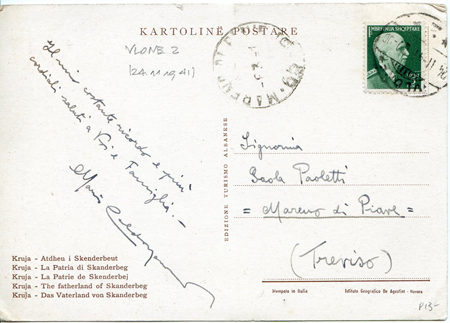 KARTOLINË POSTARE
VLONE 2
(24.11.1941)
MBRETNIJA SHQIPTARE
Il mio costante ricordo e più
cordiali saluti a Voi e Famiglia. -
Mario
EDIZIONE TURISMO ALBANESE
Signorina
Paola Paoletti
= Mareno di Piave =
(Treviso)
Kruja - Atdheu i Skenderbeut
Kruja - La Patria di Skanderbeg
Kruja - La Patrie de Skenderbej
Kruja - The fatherland of Skanderbeg
Kruja - Das Vaterland von Skanderbeg
Stampata in Italia
Istituto Geografico De Agostini - Novara
P15-